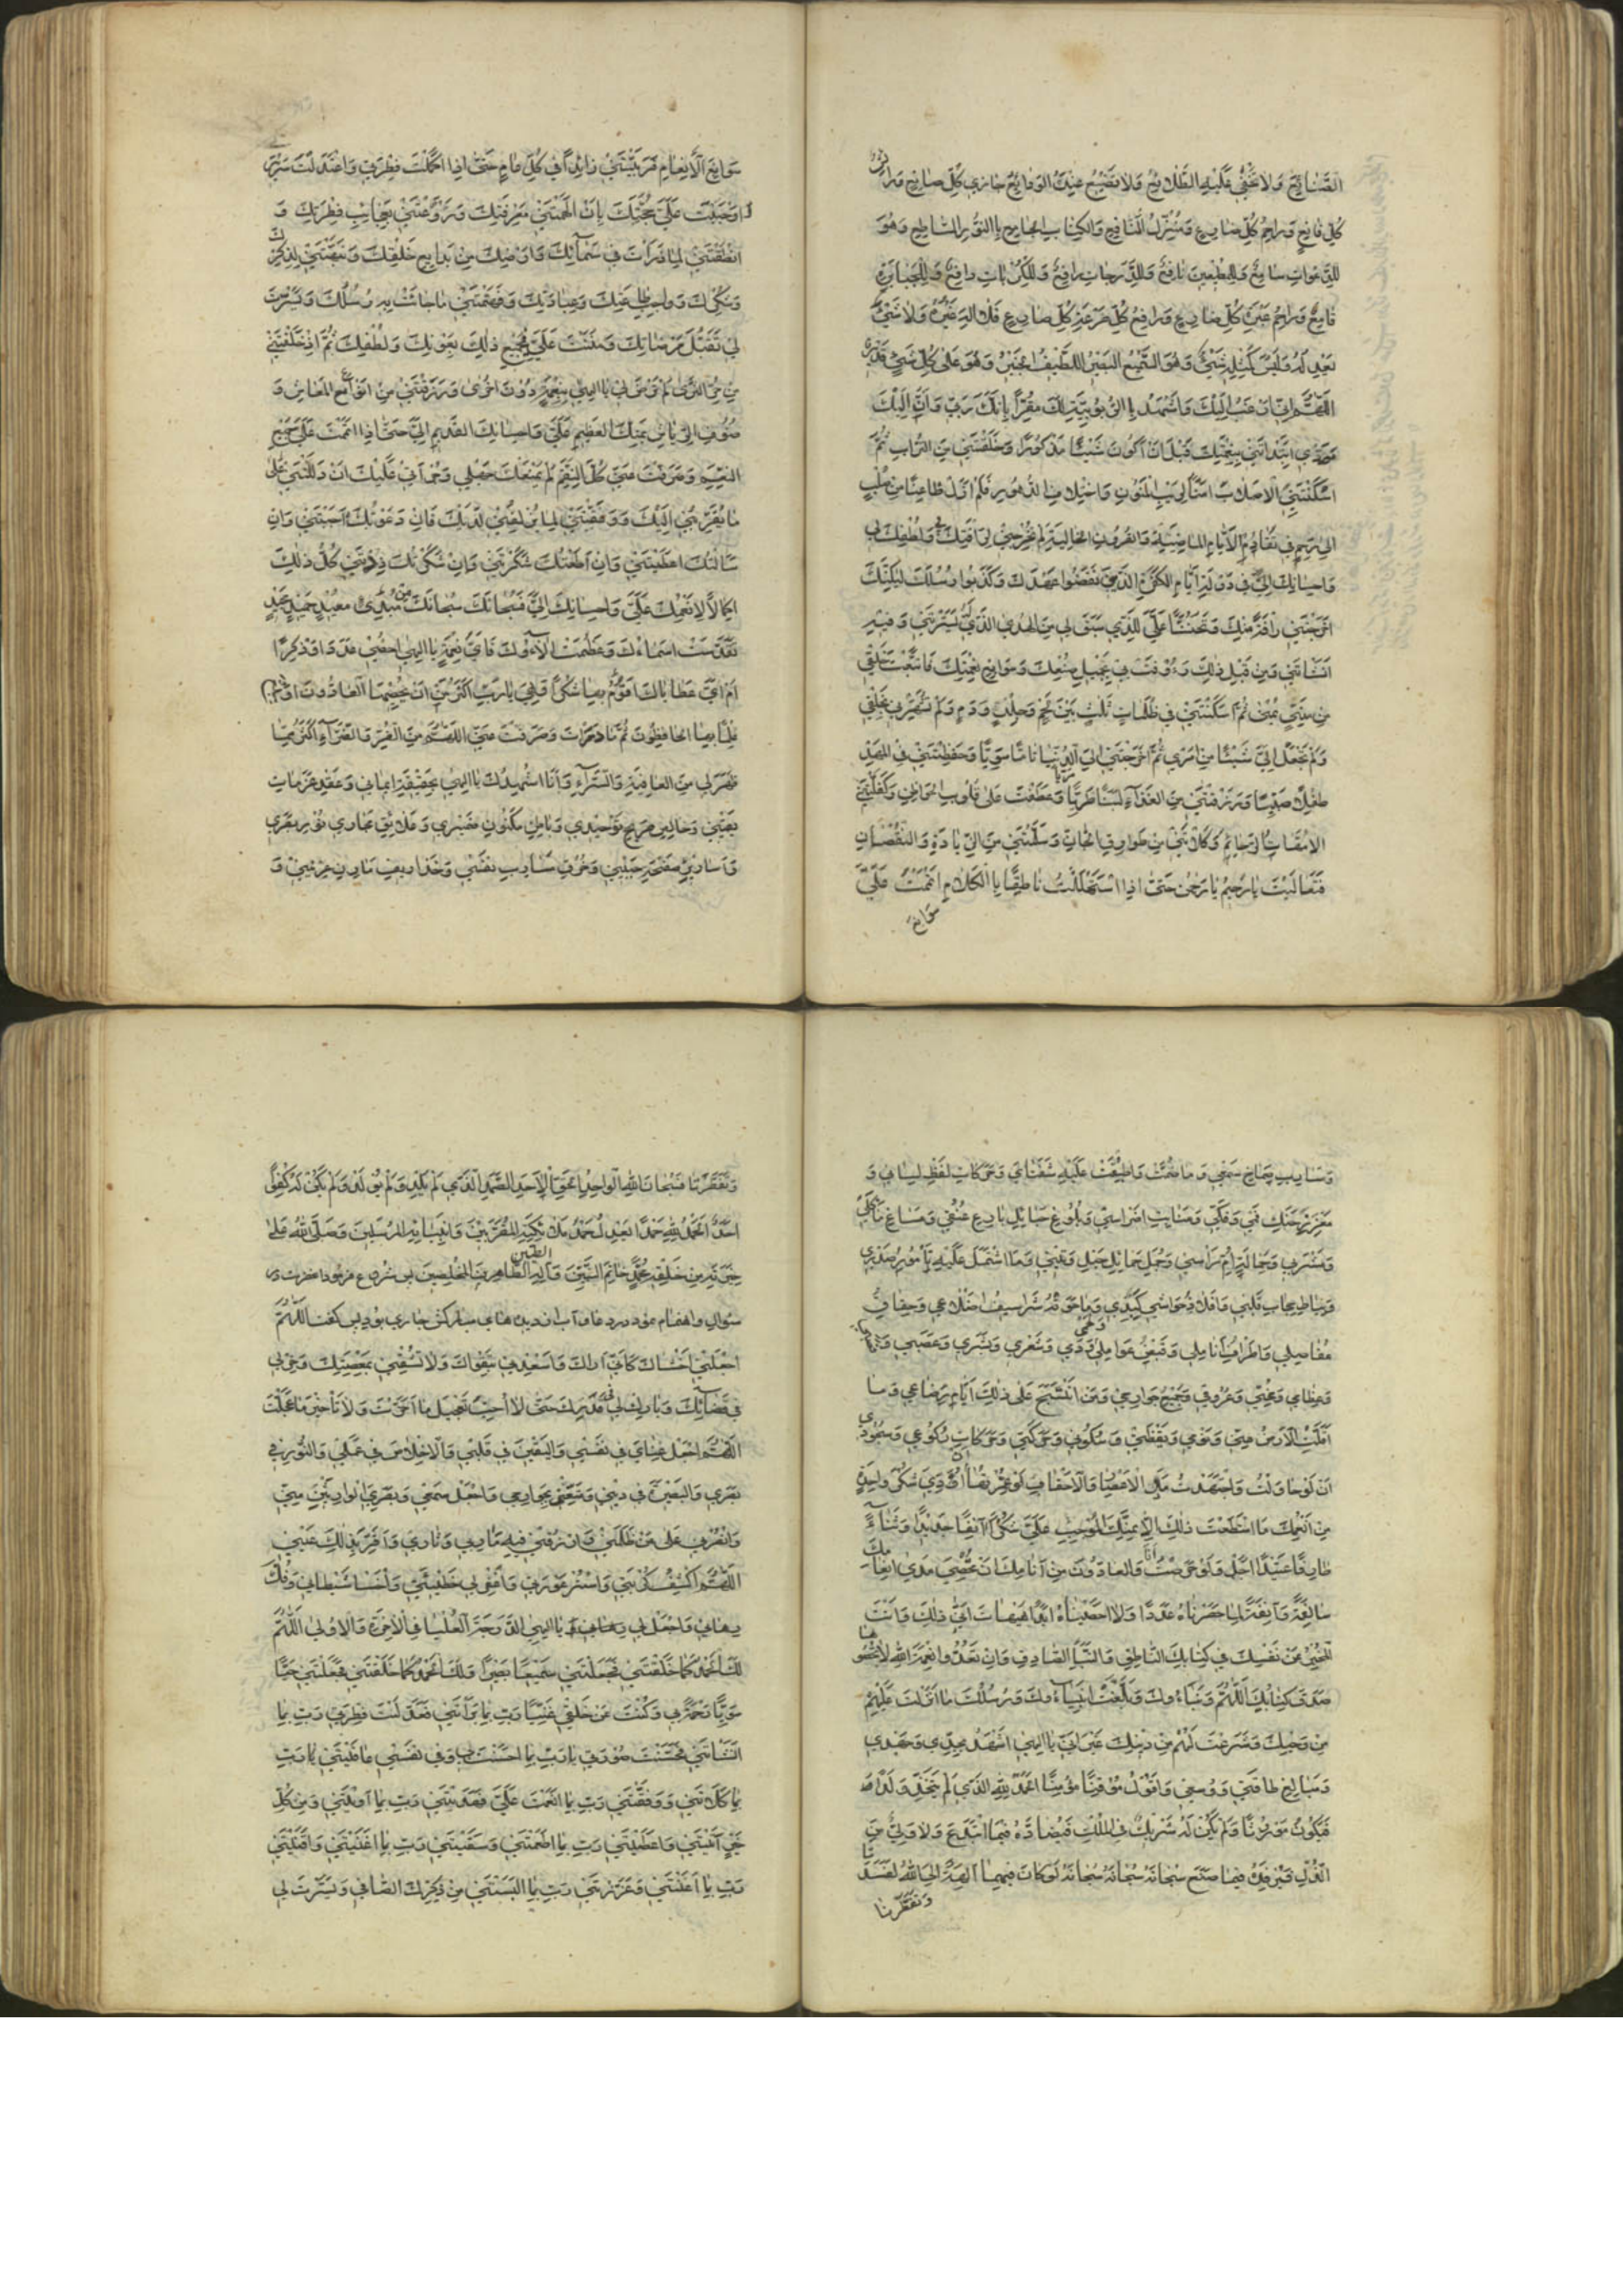 الصَّنَائِعَ وَلَا تَخْفَى عَلَيْهِ الطَّلَائِعُ وَلَا تَضِيعُ عِنْدَهُ الْوَدَائِعُ جَازِي كُلِّ صَانِعٍ وَرَائِشُ
كُلِّ قَانِعٍ وَرَاحِمُ كُلِّ ضَارِعٍ وَمُنْزِلُ الْمَنَافِعِ وَالْكِتَابِ الْجَامِعِ بِالنُّورِ السَّاطِعِ وَهُوَ
لِلدَّعَوَاتِ سَامِعٌ وَلِلْمُطِيعِينَ نَافِعٌ وَلِلدَّرَجَاتِ رَافِعٌ وَلِلْكُرُبَاتِ دَافِعٌ وَلِلْجَبَابِرَةِ
قَامِعٌ وَرَاحِمُ عَبْرَةِ كُلِّ ضَارِعٍ وَرَافِعُ كُلِّ صَرْعَةِ كُلِّ ضَارِعٍ فَلَا إِلَهَ غَيْرُهُ وَلَا شَيْءَ
يَعْدِلُهُ وَلَيْسَ كَمِثْلِهِ شَيْءٌ وَهُوَ السَّمِيعُ الْبَصِيرُ اللَّطِيفُ الْخَبِيرُ وَهُوَ عَلَى كُلِّ شَيْءٍ قَدِيرٌ
اللَّهُمَّ إِنِّي أَرْغَبُ إِلَيْكَ وَأَشْهَدُ بِالرُّبُوبِيَّةِ لَكَ مُقِرًّا بِأَنَّكَ رَبِّي وَأَنَّ إِلَيْكَ
مَرَدِّي ابْتَدَأْتَنِي بِنِعْمَتِكَ قَبْلَ أَنْ أَكُونَ شَيْئًا مَذْكُورًا وَخَلَقْتَنِي مِنَ التُّرَابِ ثُمَّ
أَسْكَنْتَنِي الْأَصْلَابَ آمِنًا لِرَيْبِ الْمَنُونِ وَاخْتِلَافِ الدُّهُورِ فَلَمْ أَزَلْ ظَاعِنًا مِنْ صُلْبٍ
إِلَى رَحِمٍ فِي تَقَادُمِ الْأَيَّامِ الْمَاضِيَةِ وَالْقُرُونِ الْخَالِيَةِ لَمْ تُخْرِجْنِي لِرَأْفَتِكَ بِي وَلُطْفِكَ لِي
وَإِحْسَانِكَ إِلَيَّ فِي دَوْلَةِ أَيَّامِ الْكَفَرَةِ الَّذِينَ نَقَضُوا عَهْدَكَ وَكَذَّبُوا رُسُلَكَ لَكِنَّكَ
أَخْرَجْتَنِي رَأْفَةً مِنْكَ وَتَحَنُّنًا عَلَيَّ لِلَّذِي سَبَقَ لِي مِنَ الْهُدَى الَّذِي يَسَّرْتَنِي وَفِيهِ
أَنْشَأْتَنِي وَمِنْ قَبْلِ ذَلِكَ رَؤُفْتَ بِي بِجَمِيلِ صُنْعِكَ وَسَوَابِغِ نِعْمَتِكَ فَابْتَدَعْتَ خَلْقِي
مِنْ مَنِيٍّ يُمْنَى ثُمَّ أَسْكَنْتَنِي فِي ظُلُمَاتٍ ثَلَاثٍ بَيْنَ لَحْمٍ وَجِلْدٍ وَدَمٍ وَلَمْ تُشَهِّرْنِي بِخَلْقِي
وَلَمْ تَجْعَلْ إِلَيَّ شَيْئًا مِنْ أَمْرِي ثُمَّ أَخْرَجْتَنِي إِلَى الدُّنْيَا تَامًّا سَوِيًّا وَحَفِظْتَنِي فِي الْمَهْدِ
طِفْلًا صَبِيًّا وَرَزَقْتَنِي مِنَ الْغِذَاءِ لَبَنًا طَرِيًّا مَرِيًّا وَعَطَفْتَ عَلَيَّ قُلُوبَ الْحَوَاضِنِ وَكَفَّلْتَنِي
الْأُمَّهَاتِ الرَّحَائِمَ وَكَلَأْتَنِي مِنْ طَوَارِقِ الْجَانِّ وَسَلَّمْتَنِي مِنَ الزِّيَادَةِ وَالنُّقْصَانِ
فَتَعَالَيْتَ يَا رَحِيمُ يَا رَحْمَنُ حَتَّى إِذَا اسْتَهْلَلْتُ نَاطِقًا بِالْكَلَامِ أَتْمَمْتَ عَلَيَّ
سَوَابِغَ
سَوَابِغَ الْإِنْعَامِ فَرَبَّيْتَنِي زَائِدًا فِي كُلِّ عَامٍ حَتَّى إِذَا اكْمَلْتَ فِطْرَتِي وَاعْتَدَلَتْ سَرِيرَتِي
أَوْجَبْتَ عَلَيَّ حُجَّتَكَ بِأَنْ أَلْهَمْتَنِي مَعْرِفَتَكَ وَرَوَّعْتَنِي بِعَجَائِبِ فِطْرَتِكَ وَ
أَنْطَقْتَنِي لِمَا ذَرَأْتَ فِي سَمَائِكَ وَأَرْضِكَ مِنْ بَدَائِعِ خَلْقِكَ وَنَبَّهْتَنِي لِذِكْرِكَ
وَشُكْرِكَ وَوَاجِبِ طَاعَتِكَ وَعِبَادَتِكَ وَفَهَّمْتَنِي مَا جَاءَتْ بِهِ رُسُلُكَ وَيَسَّرْتَ
لِي تَقَبُّلَ مَرْضَاتِكَ وَمَنَنْتَ عَلَيَّ فِي جَمِيعِ ذَلِكَ بِعَوْنِكَ وَلُطْفِكَ ثُمَّ إِذْ خَلَقْتَنِي
مِنْ حُرِّ الثَّرَى لَمْ تَرْضَ لِي يَا إِلَهِي بِنِعْمَةٍ دُونَ أُخْرَى وَرَزَقْتَنِي مِنْ أَنْوَاعِ الْمَعَاشِ وَ
صُنُوفِ الرِّيَاشِ بِمَنِّكَ الْعَظِيمِ عَلَيَّ وَإِحْسَانِكَ الْقَدِيمِ إِلَيَّ حَتَّى إِذَا أَتْمَمْتَ عَلَيَّ جَمِيعَ
النِّعَمِ وَصَرَفْتَ عَنِّي كُلَّ النِّقَمِ لَمْ يَمْنَعْكَ جَهْلِي وَجُرْأَتِي عَلَيْكَ أَنْ دَلَلْتَنِي عَلَى
مَا يُقَرِّبُنِي إِلَيْكَ وَوَفَّقْتَنِي لِمَا يُزْلِفُنِي لَدَيْكَ فَإِنْ دَعَوْتُكَ أَجَبْتَنِي وَإِنْ
سَأَلْتُكَ أَعْطَيْتَنِي وَإِنْ أَطَعْتُكَ شَكَرْتَنِي وَإِنْ شَكَرْتُكَ زِدْتَنِي كُلُّ ذَلِكَ
إِكْمَالًا لِأَنْعُمِكَ عَلَيَّ وَإِحْسَانِكَ إِلَيَّ فَسُبْحَانَكَ سُبْحَانَكَ مِنْ مُبْدِئٍ مُعِيدٍ حَمِيدٍ مَجِيدٍ
تَقَدَّسَتْ أَسْمَاؤُكَ وَعَظُمَتْ آلَاؤُكَ فَأَيُّ نِعَمِكَ يَا إِلَهِي أُحْصِي عَدَدًا وَذِكْرًا
أَمْ أَيُّ عَطَايَاكَ أَقُومُ بِهَا شُكْرًا وَهِيَ يَا رَبِّ أَكْثَرُ مِنْ أَنْ يُحْصِيَهَا الْعَادُّونَ أَوْ يَبْلُغَ
عِلْمًا بِهَا الْحَافِظُونَ ثُمَّ مَا دَرَأْتَ وَصَرَفْتَ عَنِّي اللَّهُمَّ مِنَ الضُّرِّ وَالضَّرَّاءِ أَكْثَرُ مِمَّا
ظَهَرَ لِي مِنَ الْعَافِيَةِ وَالسَّرَّاءِ وَأَنَا أُشْهِدُكَ يَا إِلَهِي بِحَقِيقَةِ إِيمَانِي وَعَقْدِ عَزَمَاتِ
يَقِينِي وَخَالِصِ صَرِيحِ تَوْحِيدِي وَبَاطِنِ مَكْنُونِ ضَمِيرِي وَعَلَائِقِ مَجَارِي نُورِ بَصَرِي
وَأَسَارِيرِ صَفْحَةِ جَبِينِي وَخُرْقِ مَسَارِبِ نَفْسِي وَخَذَارِيفِ مَارِنِ عِرْنِينِي وَ
وَمَسَارِبِ صِمَاخِ سَمْعِي وَمَا ضُمَّتْ وَأَطْبَقَتْ عَلَيْهِ شَفَتَايَ وَحَرَكَاتِ لَفْظِ لِسَانِي وَ
مَغْرَزِ حَنَكِ فَمِي وَفَكِّي وَمَنَابِتِ أَضْرَاسِي وَبُلُوغِ حَبَائِلِ بَارِعِ عُنُقِي وَمَسَاغِ مَأْكَلِي
وَمَشْرَبِي وَحِمَالَةِ أُمِّ رَأْسِي وَجُمَلِ حَمَائِلِ حَبْلِ وَتِينِي وَمَا اشْتَمَلَ عَلَيْهِ تَامُورُ صَدْرِي
وَنِيَاطِ حِجَابِ قَلْبِي وَأَفْلَاذِ حَوَاشِي كَبِدِي وَمَا حَوَتْهُ شَرَاسِيفُ أَضْلَاعِي وَحِقَاقُ
مَفَاصِلِي وَأَطْرَافُ أَنَامِلِي وَقَبْضُ عَوَامِلِي وَدَمِي وَشَعْرِي وَبَشَرِي وَعَصَبِي
وَعِظَامِي وَمُخِّي وَعُرُوقِي وَجَمِيعُ جَوَارِحِي وَمَا انْتَسَجَ عَلَى ذَلِكَ أَيَّامَ رَضَاعِي وَمَا
أَقَلَّتِ الْأَرْضُ مِنِّي وَنَوْمِي وَيَقْظَتِي وَسُكُونِي وَحَرَكَتِي وَحَرَكَاتِ رُكُوعِي وَسُجُودِي
أَنْ لَوْ حَاوَلْتُ وَاجْتَهَدْتُ مَدَى الْأَعْصَارِ وَالْأَحْقَابِ لَوْ عُمِّرْتُهَا أَنْ أُؤَدِّيَ شُكْرَ وَاحِدَةٍ
مِنْ أَنْعُمِكَ مَا اسْتَطَعْتُ ذَلِكَ إِلَّا بِمَنِّكَ الْمُوجَبِ عَلَيَّ شُكْرًا آنِفًا جَدِيدًا وَثَنَاءً
طَارِفًا عَتِيدًا أَجَلْ وَلَوْ حَرَصْتُ أَنَا وَالْعَادُّونَ مِنْ أَنَامِكَ أَنْ نُحْصِيَ مَدَى إِنْعَامِكَ
سَالِفَةً وَآنِفَةً لَمَا حَصَرْنَاهُ عَدَدًا وَلَا أَحْصَيْنَاهُ أَبَدًا هَيْهَاتَ أَنَّى ذَلِكَ وَأَنْتَ
الْمُخْبِرُ عَنْ نَفْسِكَ فِي كِتَابِكَ النَّاطِقِ وَالنَّبَأِ الصَّادِقِ وَإِنْ تَعُدُّوا نِعْمَةَ اللَّهِ لَا تُحْصُوهَا
صَدَقَ كِتَابُكَ اللَّهُمَّ وَنَبَاؤُكَ وَبَلَّغَتْ أَنْبِيَاؤُكَ وَرُسُلُكَ مَا أَنْزَلْتَ عَلَيْهِمْ
مِنْ وَحْيِكَ وَشَرَعْتَ لَهُمْ مِنْ دِينِكَ غَيْرَ أَنِّي يَا إِلَهِي أَشْهَدُ بِجِدِّي وَجَهْدِي
وَمَبَالِغِ طَاقَتِي وَوُسْعِي وَأَقُولُ مُؤْمِنًا مُوقِنًا الْحَمْدُ لِلَّهِ الَّذِي لَمْ يَتَّخِذْ وَلَدًا
فَيَكُونَ مَوْرُوثًا وَلَمْ يَكُنْ لَهُ شَرِيكٌ فِي الْمُلْكِ فَيُضَادَّهُ فِيمَا ابْتَدَعَ وَلَا وَلِيٌّ مِنَ
الذُّلِّ فَيُرْفِدَهُ فِيمَا صَنَعَ سُبْحَانَهُ سُبْحَانَهُ سُبْحَانَهُ لَوْ كَانَ فِيهِمَا آلِهَةٌ إِلَّا اللَّهُ لَفَسَدَتَا
وَتَفَطَّرَتَا
وَتَفَطَّرَتَا فَسُبْحَانَ اللَّهِ الْوَاحِدِ الْحَقِّ الْأَحَدِ الصَّمَدِ الَّذِي لَمْ يَلِدْ وَلَمْ يُولَدْ وَلَمْ يَكُنْ لَهُ كُفُوًا
أَحَدٌ الْحَمْدُ لِلَّهِ حَمْدًا يَعْدِلُ حَمْدَ مَلَائِكَتِهِ الْمُقَرَّبِينَ وَأَنْبِيَائِهِ الْمُرْسَلِينَ وَصَلَّى اللَّهُ عَلَى
خِيَرَتِهِ مِنْ خَلْقِهِ مُحَمَّدٍ خَاتَمِ النَّبِيِّينَ وَآلِهِ الطَّيِّبِينَ الطَّاهِرِينَ الْمُخْلَصِينَ پس شروع فرمود انحضرت در
سؤال واهتمام نمود در دعا و آب از دیده های مبارکش جاری بود پس گفت اللَّهُمَّ
اجْعَلْنِي أَخْشَاكَ كَأَنِّي أَرَاكَ وَأَسْعِدْنِي بِتَقْوَاكَ وَلَا تُشْقِنِي بِمَعْصِيَتِكَ وَخِرْ لِي
فِي قَضَائِكَ وَبَارِكْ لِي فِي قَدَرِكَ حَتَّى لَا أُحِبَّ تَعْجِيلَ مَا أَخَّرْتَ وَلَا تَأْخِيرَ مَا عَجَّلْتَ
اللَّهُمَّ اجْعَلْ غِنَايَ فِي نَفْسِي وَالْيَقِينَ فِي قَلْبِي وَالْإِخْلَاصَ فِي عَمَلِي وَالنُّورَ فِي
بَصَرِي وَالْبَصِيرَةَ فِي دِينِي وَمَتِّعْنِي بِجَوَارِحِي وَاجْعَلْ سَمْعِي وَبَصَرِيَ الْوَارِثَيْنِ مِنِّي
وَانْصُرْنِي عَلَى مَنْ ظَلَمَنِي وَارْزُقْنِي فِيهِ مَآرِبِي وَثَارِي وَأَقِرَّ بِذَلِكَ عَيْنِي
اللَّهُمَّ اكْشِفْ كُرْبَتِي وَاسْتُرْ عَوْرَتِي وَاغْفِرْ لِي خَطِيئَتِي وَاخْسَأْ شَيْطَانِي وَفُكَّ
رِهَانِي وَاجْعَلْ لِي يَا إِلَهِي الدَّرَجَةَ الْعُلْيَا فِي الْآخِرَةِ وَالْأُولَى اللَّهُمَّ
لَكَ الْحَمْدُ كَمَا خَلَقْتَنِي فَجَعَلْتَنِي سَمِيعًا بَصِيرًا وَلَكَ الْحَمْدُ كَمَا خَلَقْتَنِي فَجَعَلْتَنِي حَيًّا
سَوِيًّا رَحْمَةً بِي وَكُنْتَ عَنْ خَلْقِي غَنِيًّا رَبِّ بِمَا بَرَأْتَنِي فَعَدَّلْتَ فِطْرَتِي رَبِّ بِمَا
أَنْشَأْتَنِي فَحَسَّنْتَ صُورَتِي يَا رَبِّ بِمَا أَحْسَنْتَ بِي وَفِي نَفْسِي عَافَيْتَنِي يَا رَبِّ
بِمَا كَلَأْتَنِي وَوَفَّقْتَنِي رَبِّ بِمَا أَنْعَمْتَ عَلَيَّ فَهَدَيْتَنِي رَبِّ بِمَا آوَيْتَنِي وَمِنْ كُلِّ
خَيْرٍ آتَيْتَنِي وَأَعْطَيْتَنِي رَبِّ بِمَا أَطْعَمْتَنِي وَسَقَيْتَنِي رَبِّ بِمَا أَغْنَيْتَنِي وَأَقْنَيْتَنِي
رَبِّ بِمَا أَعَنْتَنِي وَعَزَّزْتَنِي رَبِّ بِمَا أَلْبَسْتَنِي مِنْ ذِكْرِكَ الصَّافِي وَيَسَّرْتَ لِي